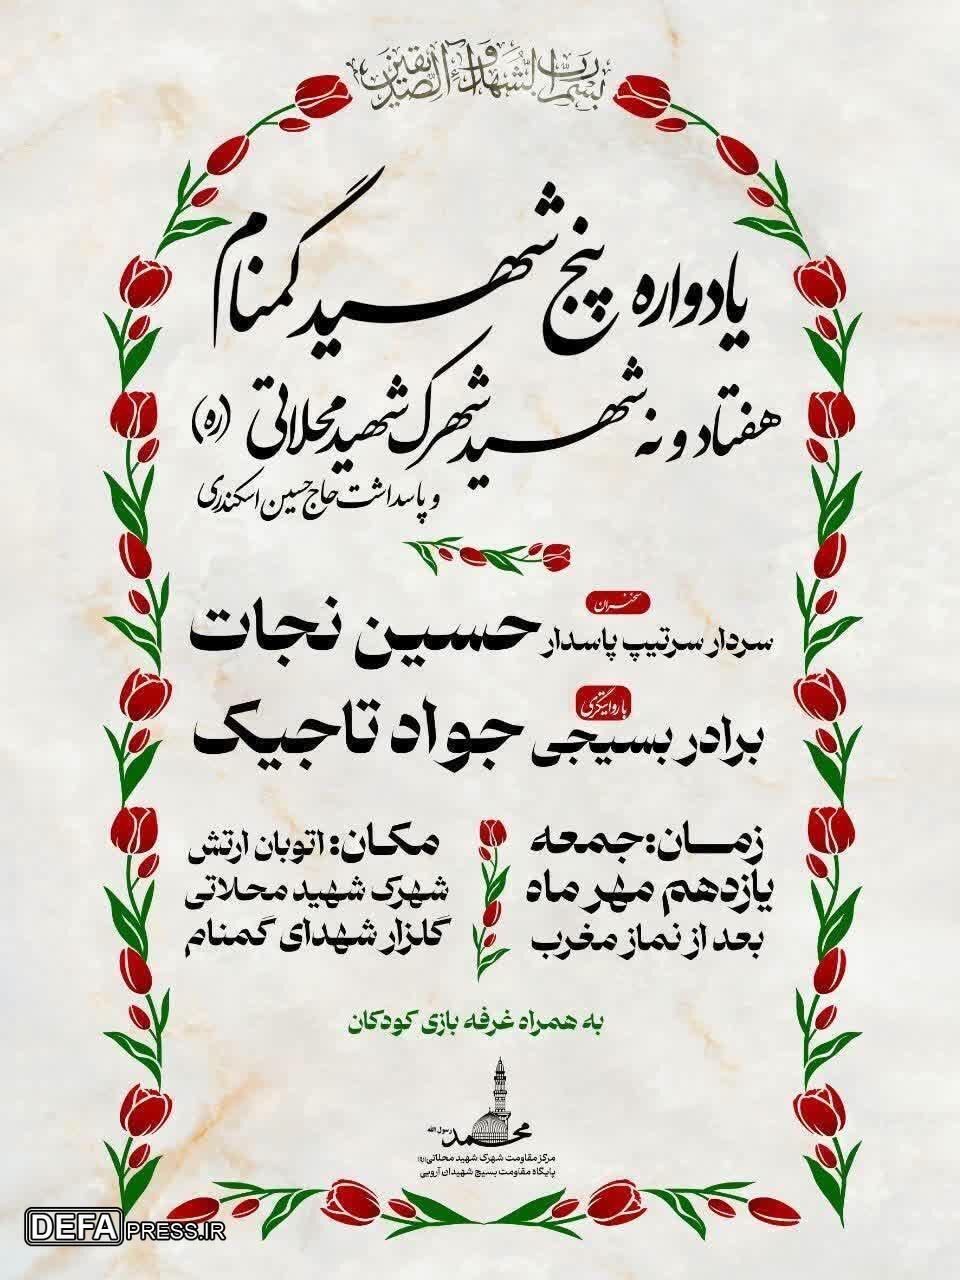 بسم رب الشهداء و الصدیقین
یادواره پنج شهید گمنام
هفتاد و نه شهید شهرک شهید محلاتی (ره)
و پاسداشت حاج حسین اسکندری
سخنران
سردار سرتیپ پاسدار حسین نجات
با روایتگری
برادر بسیجی جواد تاجیک
زمان: جمعه
یازدهم مهر ماه
بعد از نماز مغرب
مکان: اتوبان ارتش
شهرک شهید محلاتی
گلزار شهدای گمنام
به همراه غرفه بازی کودکان
محمد رسول الله
مرکز مقاومت شهرک شهید محلاتی (ره)
پایگاه مقاومت بسیج شهیدان آرویی
DEFAPRESS.IR